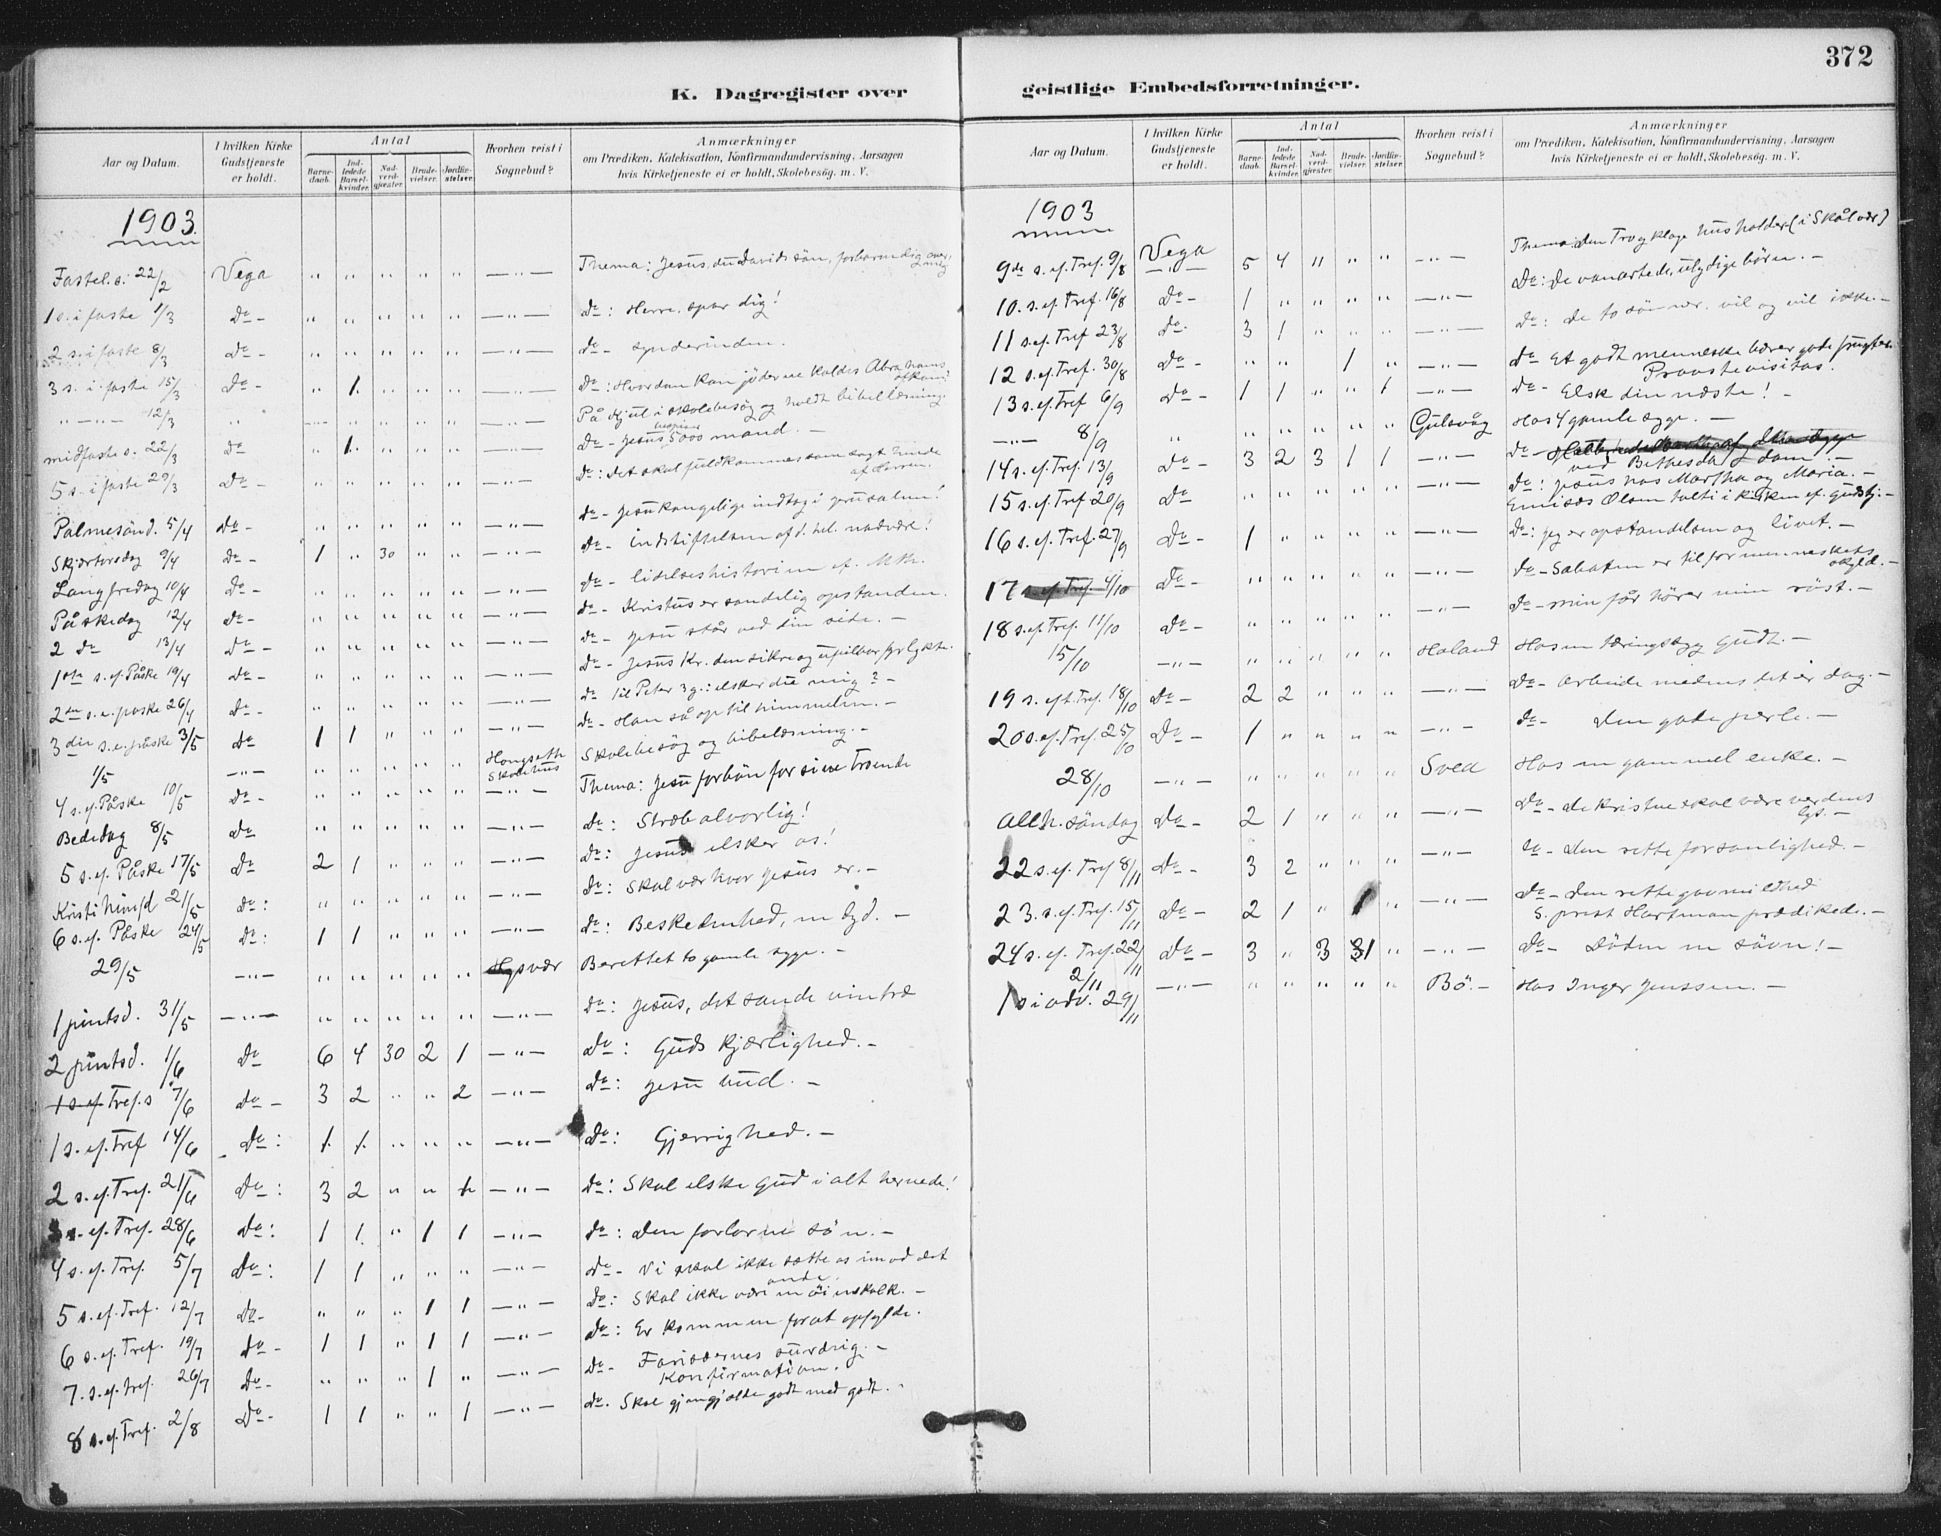 372
K. Dagregister over
geistlige Embedsforretninger.
Aar og Datum.
I hvilken Kirke Gudstjeneste er holdt.
Antal
Barnedaab.
Indledede Barselkvinder.
Nadverdgjæster.
Brudevielser.
Jordfæstelser.
Hvorhen reist i Sognebud?
Anmærkninger
om Prædiken, Katekisation, Konfirmandundervisning, Aarsagen
hvis Kirketjeneste ei er holdt, Skolebesög. m. V.
1903.
Fastel.s. 22/2 Vega " " " " " —"— Thema: Jesus, du Davids sön, forbarm dig over mig
1 s. i faste 1/3 Do - " " " " " —"— Do: Herre, spar dig!
2 s. i faste 8/3 Do - " " " " " —"— Do - Synderinden.
3 s. i faste 15/3 Do - " 1. " " " —"— Do: Hvordan kan jöderne kaldes Abrahams afkom?
"—"— 12/3 " — " " " " —"— På skolebesøg og holdt bibellæsning.
midfaste s. 22/3 Do " 1. " " " —"— Do - Jesus bespiser 5000 mand. —
5 s. i faste 29/3 Do - " " " " " —"— Do: Det skal fuldkommes som sagt af Herren.
Palmesönd. 5/4 Do - " " " " " —"— Do - Jesu kongelige indtog i Jerusalem!
Skjærtorsdag 9/4 Do - 1 " 30 " " —"— Do - Indstiftelsen af d. hel. nadvere!
Langfredag 10/4 Do - " " " " " —"— Do - lidelseshistorien ef. Mth.
Påskedag 12/4 Do - " " " " " —"— Do - Kristus er sandelig opstanden.
2 Do 13/4 Do - " " " " " —"— Do - Jesu står ved din side. —
1ste s. ef. Påske 19/4 Do - " " " " " —"— Do - Jesus Kr. den sikre og
2den s. e. paske 26/4 Do - " " " " " —"— Do til Peter 3 g.: elsker du mig? —
3die s. e. påske 3/5 Do 1 1 " " " —"— Do - Han så op til himmelen. —
1/5 —"— " " " " " Hongseth Skolehus Skolebesög og bibellæsning. —
4 s. ef. Påske 10/5 Do - " " " " " —"— Thema: Jesu forbön for sine troende
Bededag 8/5 Do " " " " " —"— Do: Stræb alvorlig!
5 s. ef. Påske 17/5 Do 2 1 " " " —"— Do: Jesus elsker os!
Kristi himfd 21/5 Do: " " " " " —"— Do: Skal vær hvor Jesus er. —
6 s. ef. Påske 24/5 Do: 1 1 " " " —"— Do: Beskedenhed, en dyd. —
29/5 —"— " " " " " Hysvær Berettet to gamle syge. —
1 pintsd. 31/5 —"— " " " " " —"— Do: Jesus, det sande vintræ
2 pintsd. 1/6 Do 6 4 30 2 1 —"— Do: Guds kjærlighed. —
1 s. ef Tref.s 7/6 Do - 3 2 " " 2 —"— Do: Jesu bud. —
1 s. ef. Tref 14/6 Do: 1. 1. " " " —"— Do: Gjerrighed. —
2 s. ef. Tref. 21/6 Do: 3 2 " " 1 —"— Do: Skal elske Gud i alt hernede!
3 s. ef. Tref. 28/6 Do: 1 1. " 1 1 —"— Do: Den forlorne sön. —
4 s. ef. Tref. 5/7 Do: 1 1 " " " —"— Do - Vi skal ikke sætte os imod det onde.
5 s. ef. Tref. 12/7 Do - " " " 1 1 —"— Do: Skal ikke være en öienskalk. —
6 s. ef. Tref. 19/7 Do - 1 1 " 1 1 —"— Do: Er kommen forat opfylde.
7. s. ef. Tref. 26/7 Do - " " " 1 " —"— Do - Farisæernes surdeig. —
Konfirmation.
8 s. ef. Tref. 2/8 Do - 1 1 " " 1 —"— Do - Skal gjengjælde godt med godt. —
Aar og Datum.
I hvilken Kirke Gudstjeneste er holdt.
Antal
Barnedaab.
Indledede Barselkvinder.
Nadverdgjæster.
Brudevielser.
Jordfæstelser.
Hvorhen reist i Sognebud?
Anmærkninger
om Prædiken, Katekisation, Konfirmandundervisning, Aarsagen
hvis Kirketjeneste ei er holdt, Skolebesög. m. V.
1903
9de s. ef. Tref. 9/8 Vega 5 4 " " " —"— Thema: Den Tro og kloge husholder (i Skålvær)
10. s. ef Tref. 16/8 Do - 1 " " " " —"— Do: De vanartede, ulydige börn. —
11 s. ef Tref 23/8 Do - 3 1 " " " —"— Do: De to sönner. vil og vil ikke. —
12 s. ef. Tref. 30/8 Do - " " " 1 " —"— Do Et godt menneske bærer gode frugter.
Provstevisitas.
13 s. ef. Tref 6/9 Do - 1 1 " " 1 —"— Do - Elsk din næste! —
—"— 8/9 " " " " " " Gulsvåg Hos 4 gamle syge. —
14 s. ef. Tref. 13/9 Do - 3 2 3 1 1 —"— Do - ved Bethesda dam. —
15 s. ef. Tref 20/9 Do " " " " " —"— Do: Jesus hos Martha og Maria. —
Olsen talti i kirken ef. gudstj. —
16 s. ef. Tref. 27/9 Do - 1 " " " " Do: Jeg er opstandelsen og livet. —
17 s. ef. Tref. 4/10 Do - " " " " " —"— Do - Sabaten er til for menneskets skyld. —
18 s. ef. Tref. 11/10 Do - " " " " " —"— Do - min får hörer min röst. —
15/10 —"— " " " " " Holand Hos en tæringssyg Gudt. —
19 s. eft. Tref. 18/10 Do - 2 2 " " " —"— Do - Arbeide medens det er dag. —
20 s. ef. Tref. 25/10 Do - 1 " " " " —"— Do - Den gode perle. —
28/10 —"— " " " " " Svea Hos en gammel enke. —
Allh. söndag Do - 2 1 " " " —"— Do - De kristne skal være verdens lys. —
22 s. ef. Tref 8/11 Do - 3 2 " " " —"— Do - Den rette forsonlighed. —
23. s. ef. Tref. 15/11 Do - 2 1 " 1 " —"— Do - Den rette gavmildhed
S. prest Hartman prædikede. —
24 s. ef. Tref. 22/11 Do - 3 " 3 31 " —"— Do - Döden en sövn! —
2/11 —"— " " " " " Bö. — Hos Inger Jenssen. —
1 s i adv. 29/11